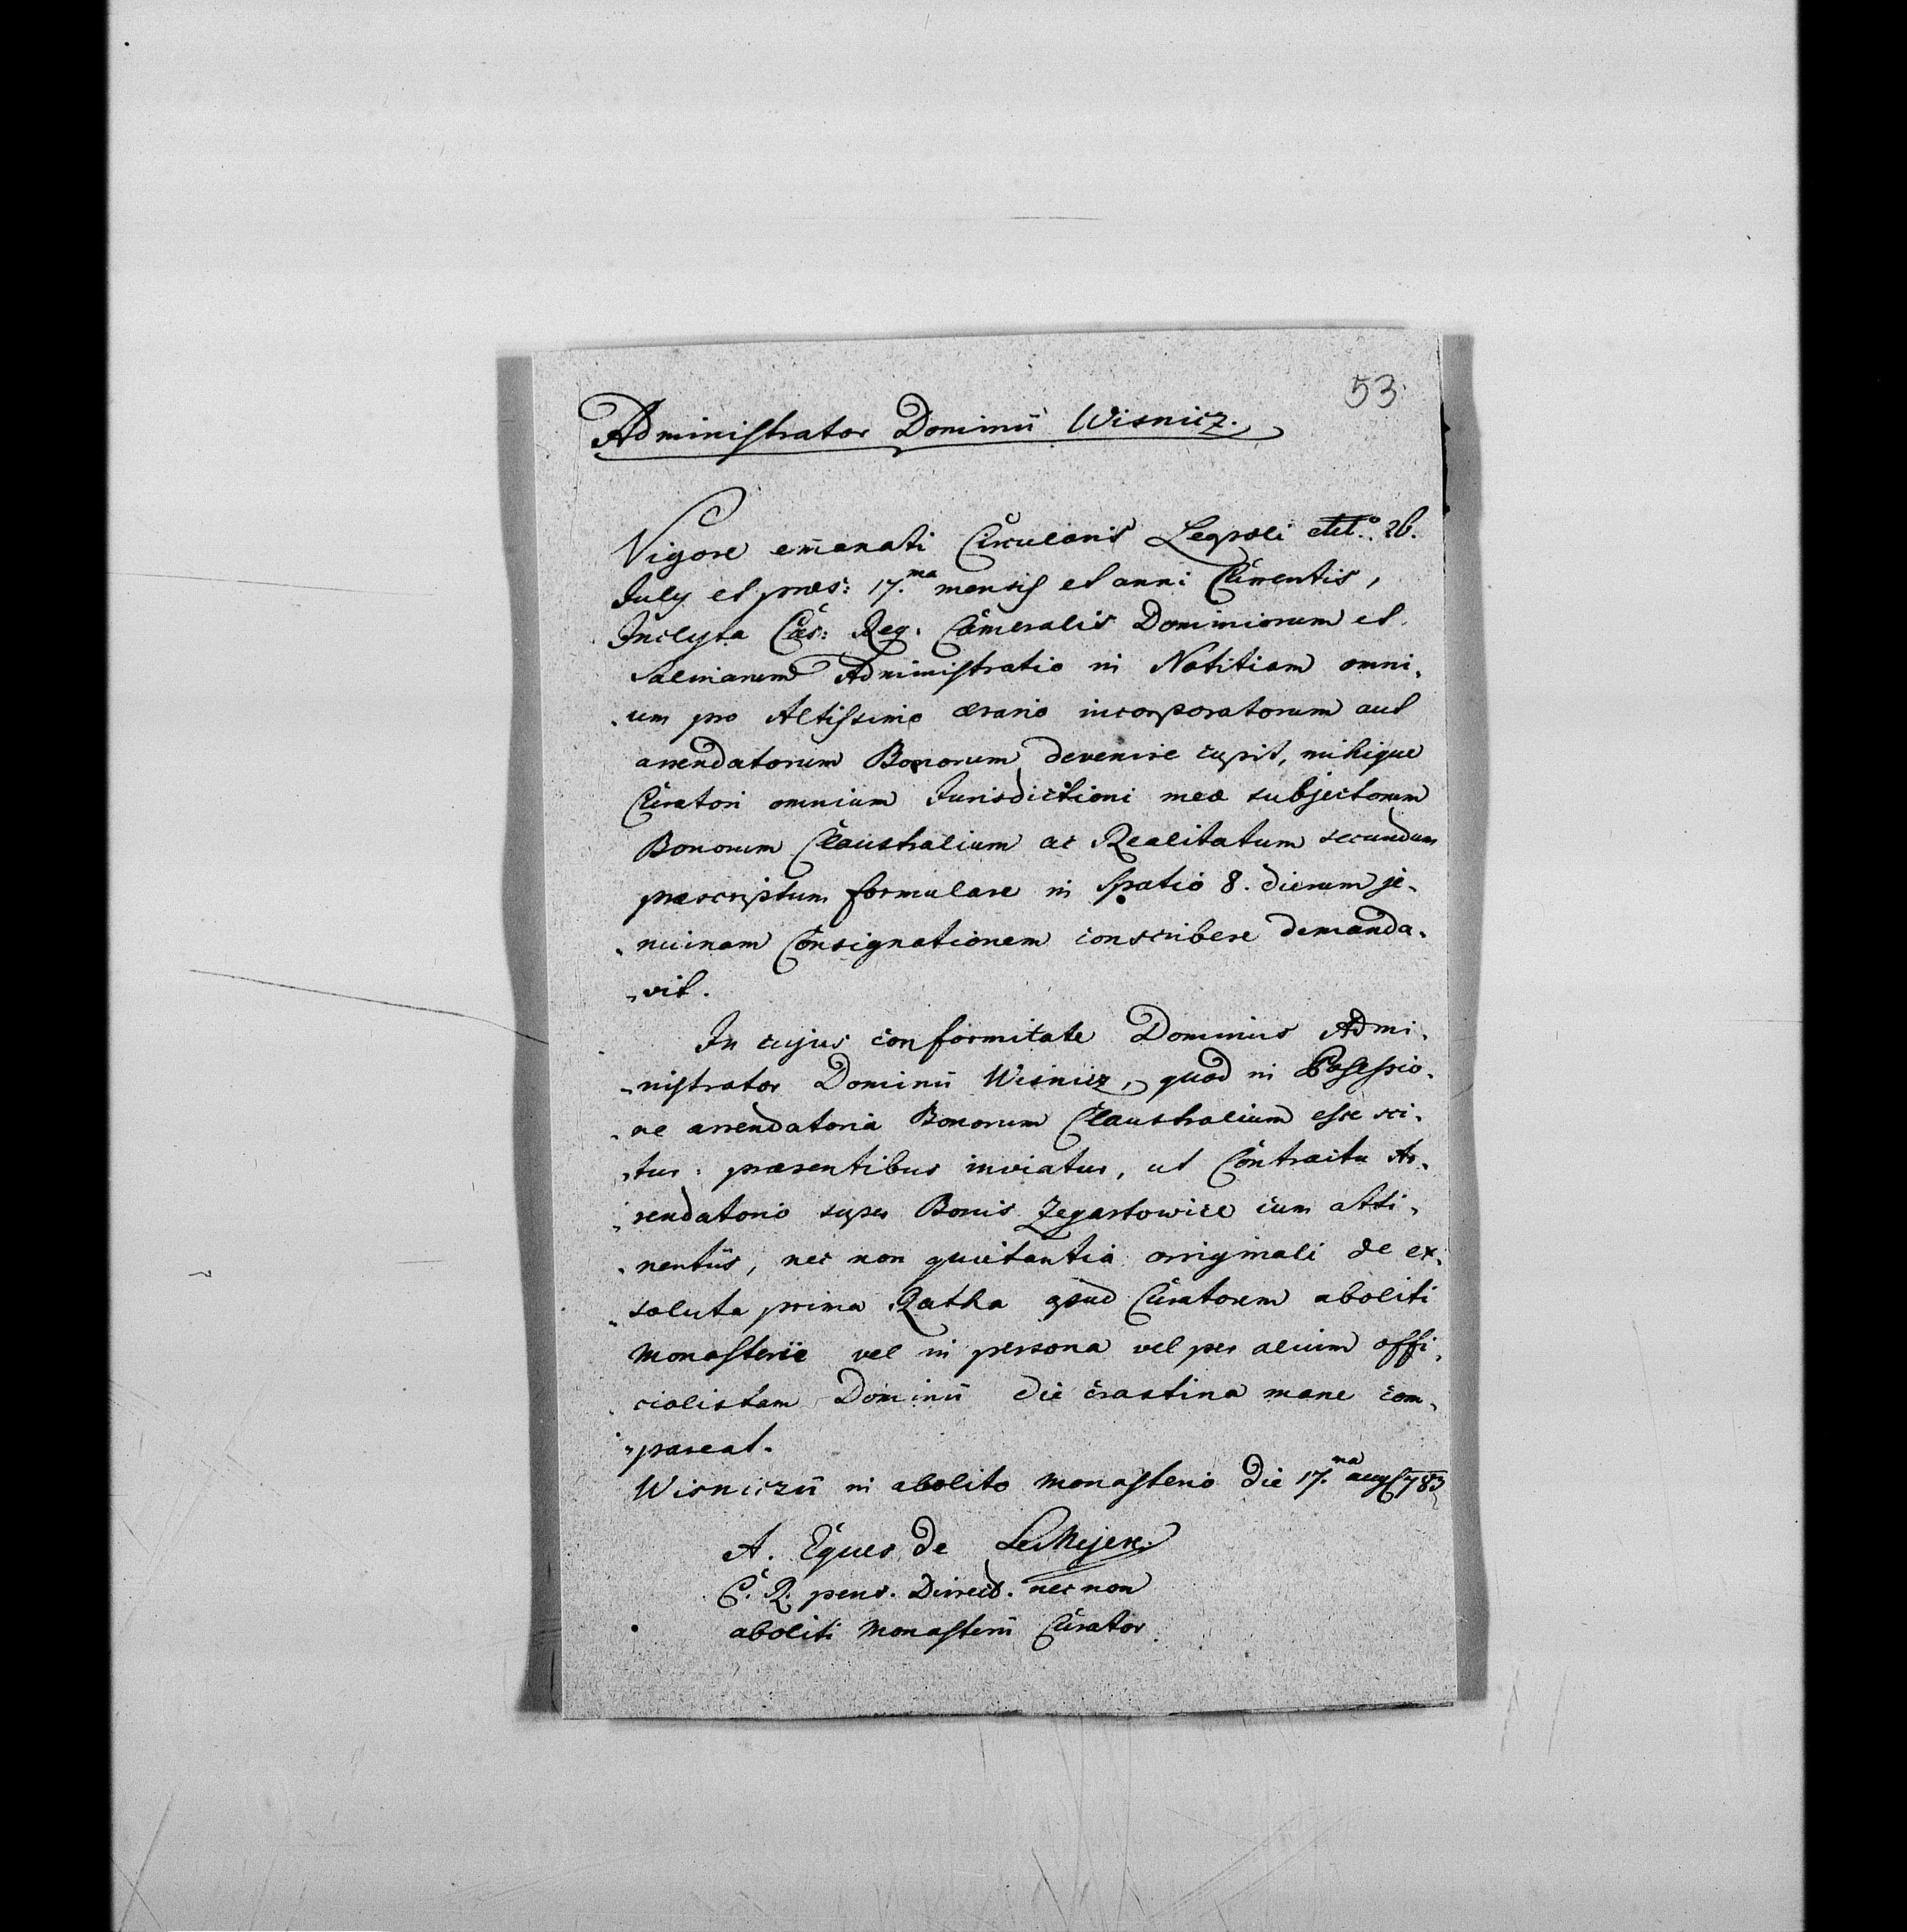 53.
Administrator Dominii Wisnicz.
Vigore emanati Circularis Leopoli ddto. 26.
July et præs: 17.ma mensis et anni Currentis,
Inclyta Cæs: Reg: Cameralis Dominiorum et
Salinarum Administratio in Notitiam omni-
-um pro Altissimo ærario incorporatorum aut
arrendatorum Bonorum devenire cupit, mihique
Curatori omnium Jurisdictioni meæ subjectorum
Bonorum Claustralium ac Realitatum secundum
præscriptum formulare in Spatio 8. dierum je-
-nuinam Consignationem conscribere demanda-
-vit.
In cujus conformitate Dominus Admi-
-nistrator Dominii Wisnicz, quod in Possessio-
-ne arrendatoria Bonorum Claustralium esse sci-
-tur: præsentibus inviatur, ut Contractu Ar-
-rendatorio super Bonis Zegartowice cum atti-
-nentiis, nec non quietantia originali de ex-
-soluta prima Ratha apud Curatorem aboliti
Monasterii vel in persona vel per alium offi-
cialistam Dominii die crastina mane com-
-pareat.
Wisniczii in abolito Monasterio die 17.ma aug 783
A. Eques de LeMejere
C. R. pens. Direct. nec non
aboliti Monasterii Curator